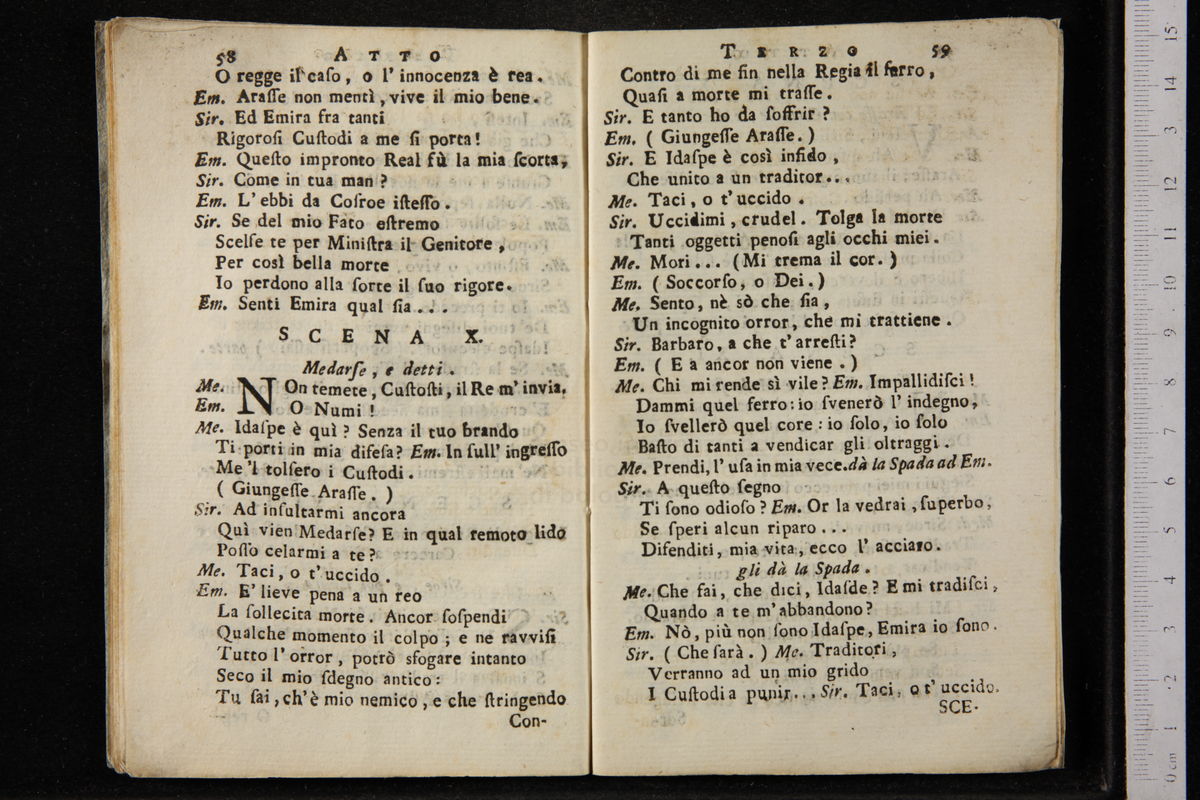 58 ATTO
O regge il caſo, o l' innocenza è rea.
Em. Araſſe non mentì, vive il mio bene.
Sir. Ed Emira fra tanti
Rigoroſi Cuſtodi a me ſi porta!
Em. Queſto impronto Real fù la mia ſcorta,
Sir. Come in tua man?
Em. L' ebbi da Coſroe iſteſſo.
Sir. Se del mio Fato eſtremo
Scelſe te per Miniſtra il Genitore,
Per così bella morte
Io perdono alla ſorte il ſuo rigore.
Em. Senti Emira qual ſia...
SCENA X.
Medarſe, e detti.
Me. NOn temete, Cuſtoſti, il Re m' invia.
Em. O Numi!
Me. Idaſpe è quì? Senza il tuo brando
Ti porti in mia difeſa? Em. In ſull' ingreſſo
Me 'l tolſero i Cuſtodi.
(Giungeſſe Araſſe.)
Sir. Ad inſultarmi ancora
Quì vien Medarſe? E in qual remoto lido
Poſſo celarmi a te?
Me. Taci, o t' uccido.
Em. E' lieve pena a un reo
La ſollecita morte. Ancor ſoſpendi
Qualche momento il colpo; e ne ravviſi
Tutto l' orror, potrò sfogare intanto
Seco il mio ſdegno antico:
Tu ſai, ch' è mio nemico, e che ſtringendo
Con-
TERZO 59
Contro di me fin nella Regia il ferro,
Quaſi a morte mi traſſe.
Sir. E tanto ho da ſoffrir?
Em. (Giungeſſe Araſſe.)
Sir. E Idaſpe è così infido,
Che unito a un traditor...
Me. Taci, o t' uccido.
Sir. Uccidimi, crudel. Tolga la morte
Tanti oggetti penoſi agli occhi miei.
Me. Mori... (Mi trema il cor.)
Em. (Soccorſo, o Dei.)
Me. Sento, nè sò che ſia,
Un incognito orror, che mi trattiene.
Sir. Barbaro, a che t' arreſti?
Em. (E a ancor non viene.)
Me. Chi mi rende sì vile? Em. Impallidiſci!
Dammi quel ferro: io ſvenerò l' indegno,
Io ſvellerò quel core: io ſolo, io ſolo
Baſto di tanti a vendicar gli oltraggi.
Me. Prendi, l' uſa in mia vece. dà la Spada ad Em.
Sir. A queſto ſegno
Ti ſono odioſo? Em. Or la vedrai, ſuperbo,
Se ſperi alcun riparo...
Difenditi, mia vita, ecco l' acciaro.
gli dà la Spada.
Me. Che fai, che dici, Idaſde? E mi tradiſci,
Quando a te m' abbandono?
Em. Nò, più non ſono Idaſpe, Emira io ſono.
Sir. (Che ſarà.) Me. Traditori,
Verranno ad un mio grido
I Cuſtodi a punir... Sir. Taci, o t' uccido.
SCE-